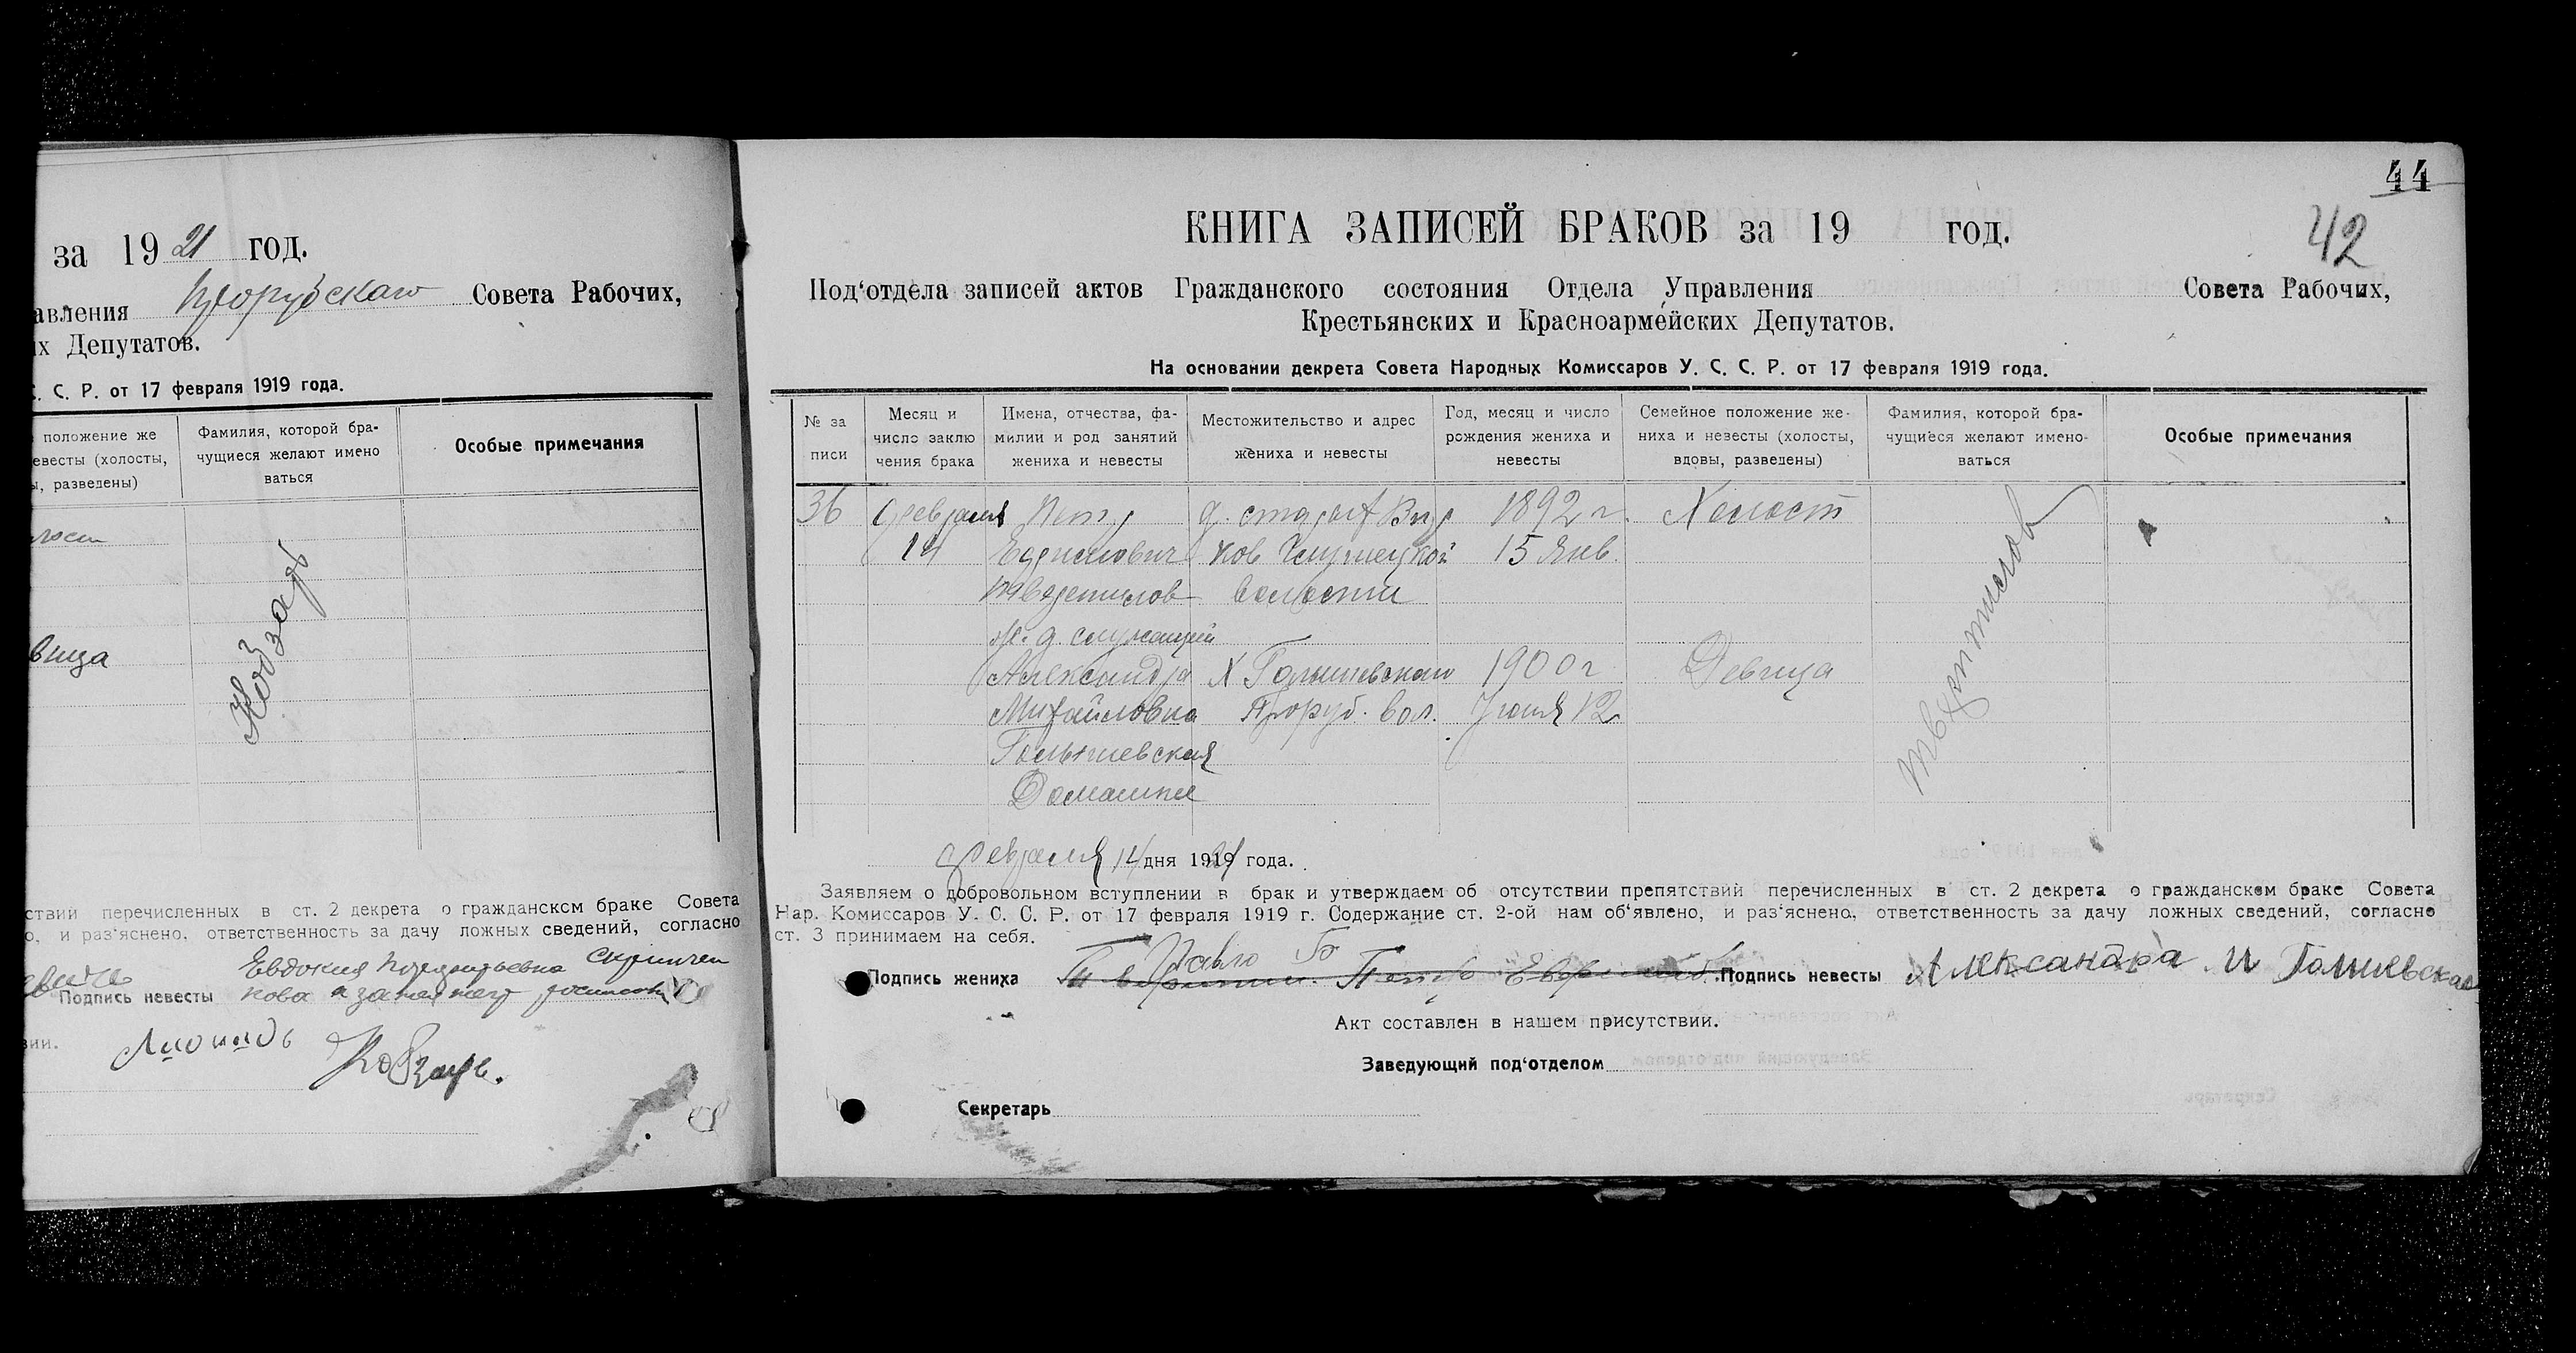 за 1921 год.
авления Прорубскаго Совета Рабочих,
их Депутатов.
С. С. Р. от 17 февраля 1919 года.
положение же
евесты (холосты,
ы, разведены)
Фамилия, которой бра-
чущиеся желают имено
ваться
Особые примечания
лост
вица
Кобзарь
ствии перечисленных в ст. 2 декрета о гражданском браке Совета
о, и раз‘яснено, ответственность за дачу ложных сведений, согласно
Евдокия
Подпись невесты кова а за нея негр
ии.
Кобзарь.
44
42
КНИГА ЗАПИСЕЙ БРАКОВ за 19 год.
Под‘отдела записей актов Гражданского состояния Отдела Управления Совета Рабочих,
Крестьянских и Красноармейских Депутатов.
На основании декрета Совета Народных Комиссаров У. С. С. Р. от 17 февраля 1919 года.
№ за
писи
Месяц и
число заклю
чения брака
Имена, отчества, фа-
милии и род занятий
жениха и невесты
Местожительство и адрес
жениха и невесты
Год, месяц и число
рождения жениха и
невесты
Семейное положение же-
ниха и невесты (холосты,
вдовы, разведены)
Фамилия, которой бра-
чущиеся желают имено-
ваться
Особые примечания
36 февраля Петр 1892 г. Холост
14 15 Янв.
волости
ж. д. служащий
Александра Х 1900 г Девица
Михайловна Проруб. вол. Июня 12
Голышевская
Домашне
февраля 14 дня 1921 года.
Заявляем о добровольном вступлении в брак и утверждаем об отсутствии препятствий перечисленных в ст. 2 декрета о гражданском браке Совета
Нар. Комиссаров У. С. С. Р. от 17 февраля 1919 г. Содержание ст. 2-ой нам об‘явлено, и раз‘яснено, ответственность за дачу ложных сведений, согласно
ст. 3 принимаем на себя.
Подпись жениха Петр Подпись невесты Александра М Голишевская
Акт составлен в нашем присутствии.
Заведующий под‘отделом
Секретарь